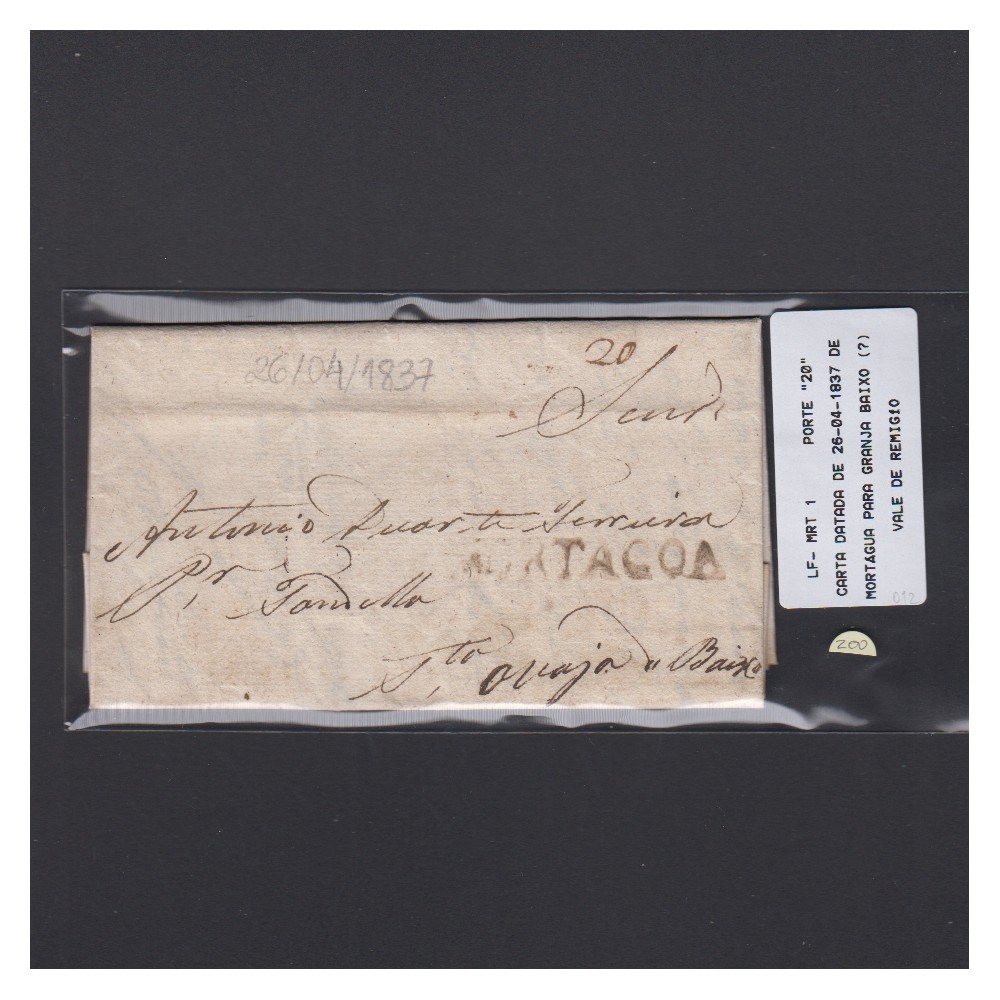 26/04/1837
20
Antonio Duarte Ferreira
MORTAGOA
Pr. Tondella
Sto
Baixo
LF- MRT 1 PORTE "20"
CARTA DATADA DE 26-04-1837 DE
MORTÁGUA PARA GRANJA BAIXO (?)
VALE DE REMIGIO
012
200